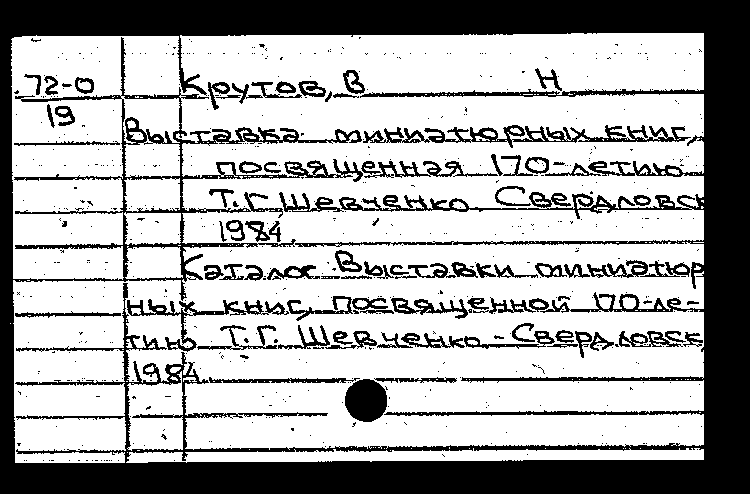 72-0 Крутов, В Н
19
Выставка миниатюрных книг,
посвященная 170-летию
Т.Г. Шевченко. Свердловск
1984.
Каталог Выставки миниатюр
ных книг, посвященной 170-ле-
тию Т.Г. Шевченко - Свердловск,
1984.